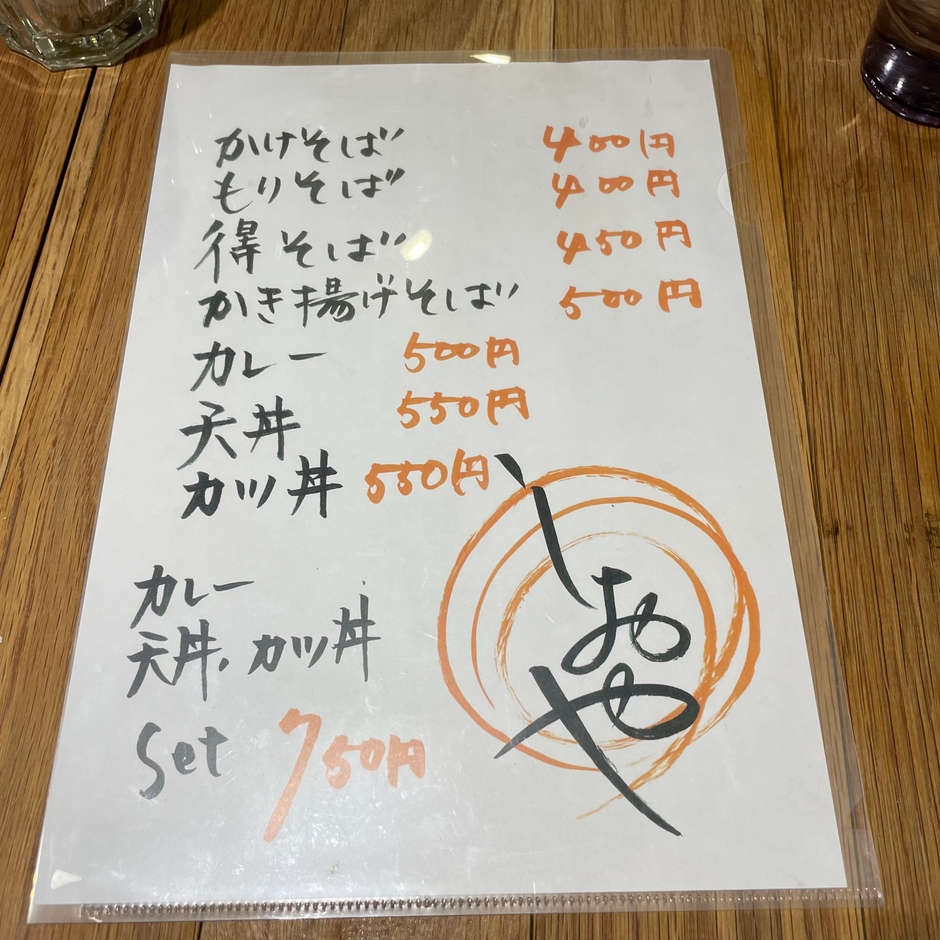 かけそば 400円
もりそば 400円
得そば 450円
かき揚げそば 500円
カレー 500円
天丼 550円
カツ丼 550円
カレー
天丼, カツ丼
Set 750円
しおや